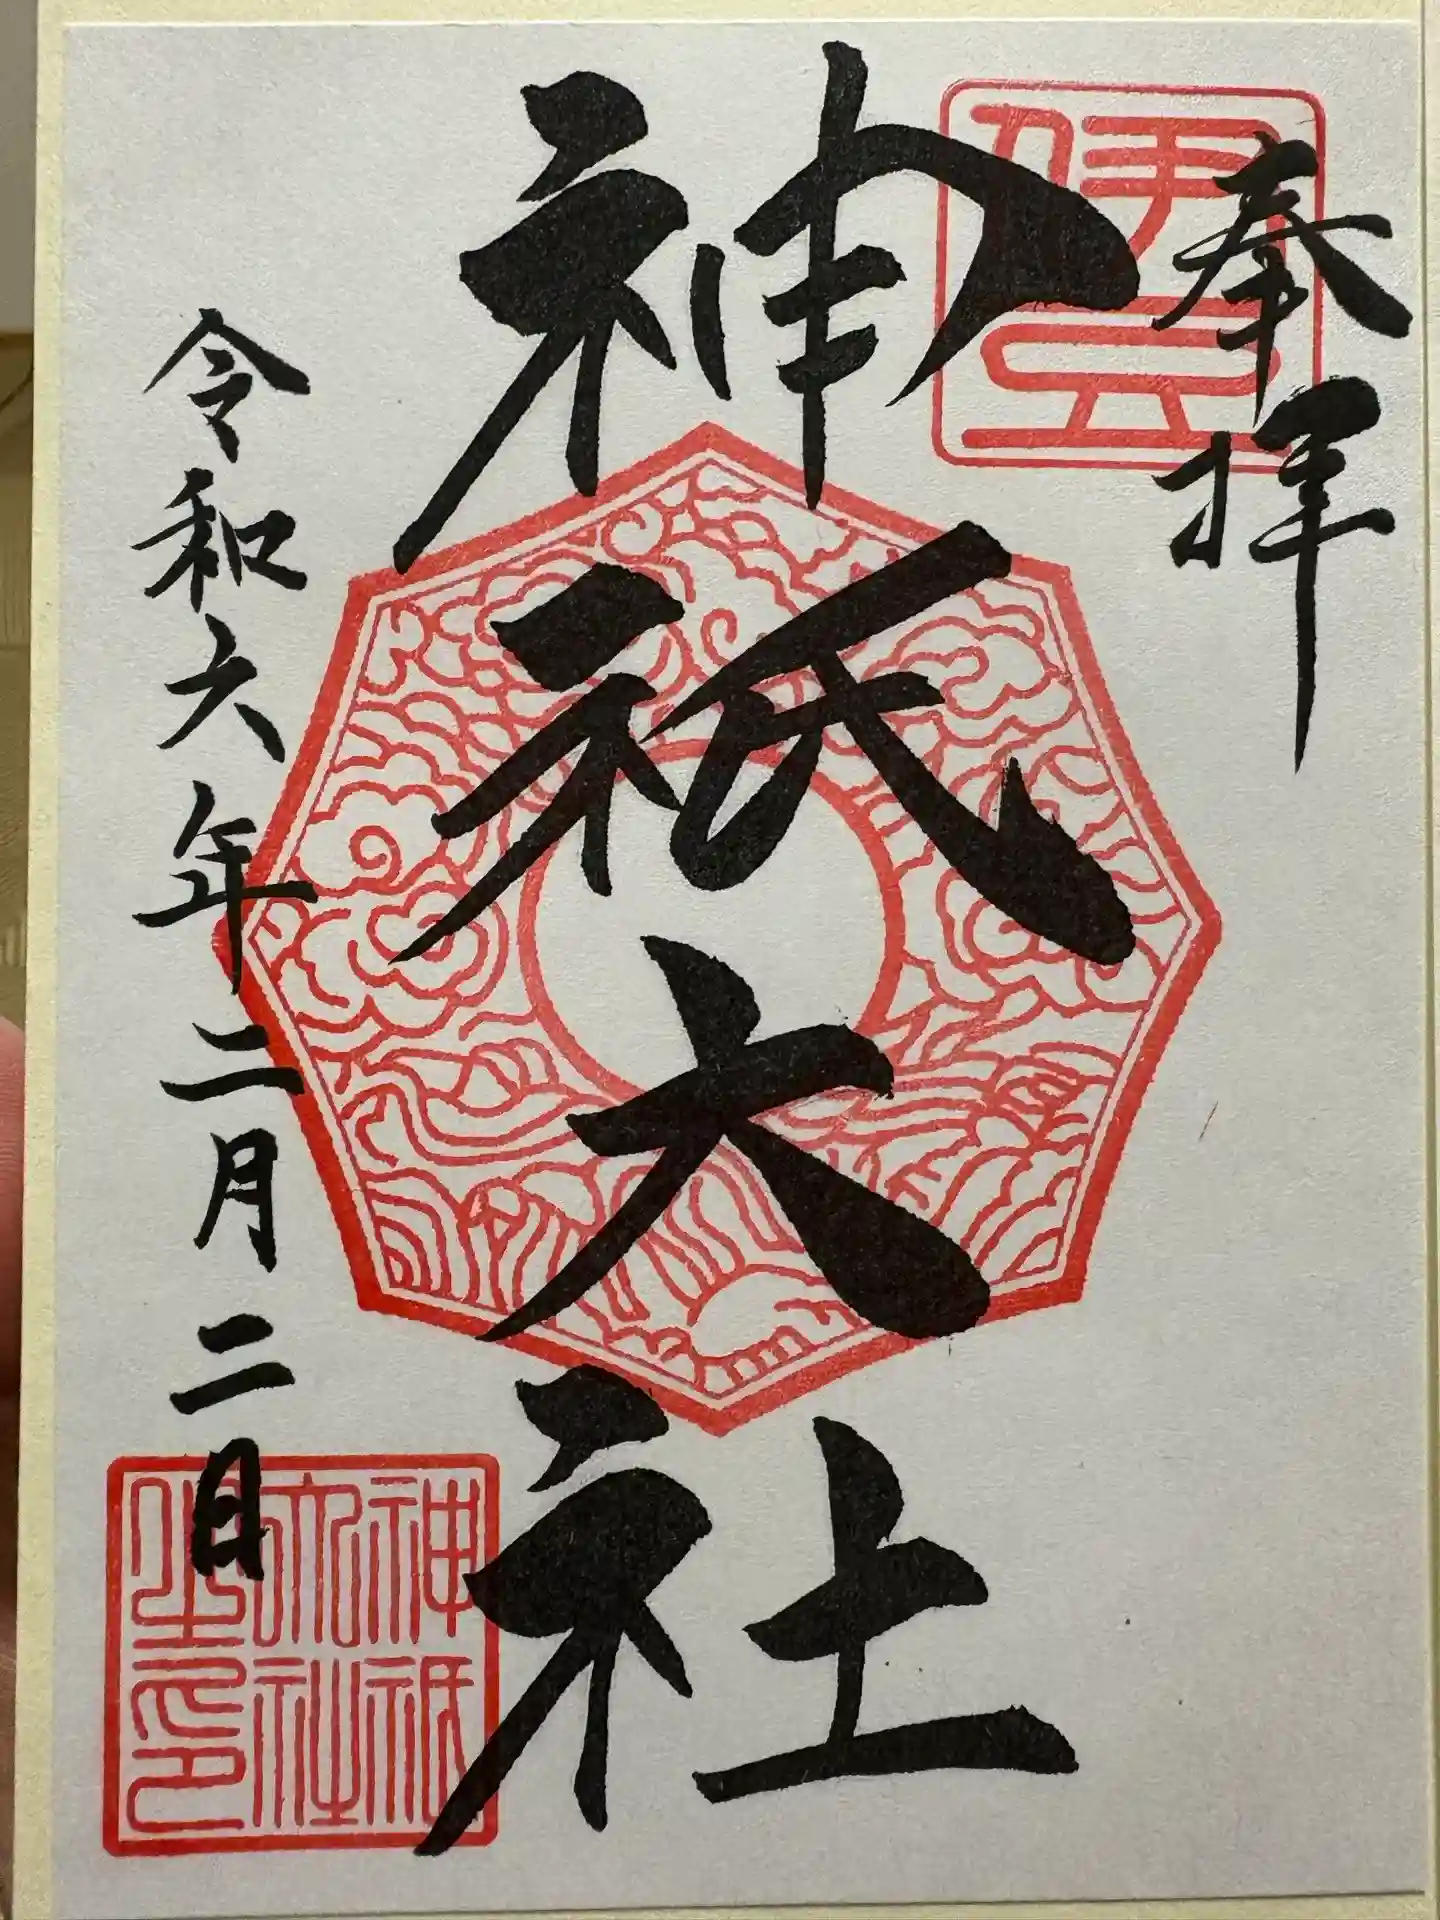 奉拝
伊豆
神祇大社
令和六年二月二日
神祇
大社
之印